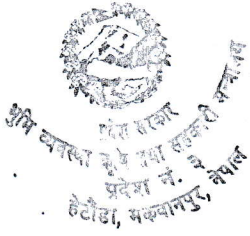 सरकार
भूमि व्यवस्था कृषि तथा सहकारी मन्त्रालय
प्रदेश नं. ३, नेपाल
हेटौंडा, मकवानपुर,